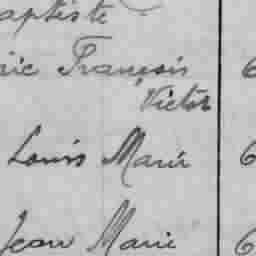 aptiste
rie François 6
Victor
Louis Marie 6
Jean Marie 6